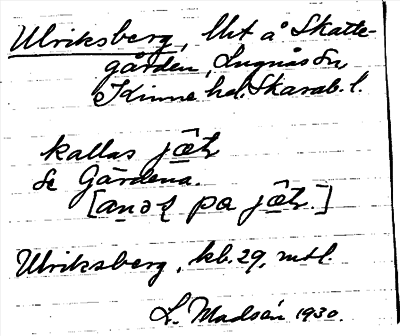 Ulriksberg, lht å Skatte-
gården, Lugnås sn,
Kinne hd. Skarab. l.
kallas
se Gärdena.
[anəɽ pɑ jæ̂tɽ.]
Ulriksberg, kb. 29, mtl.
L. Madsén 1930.